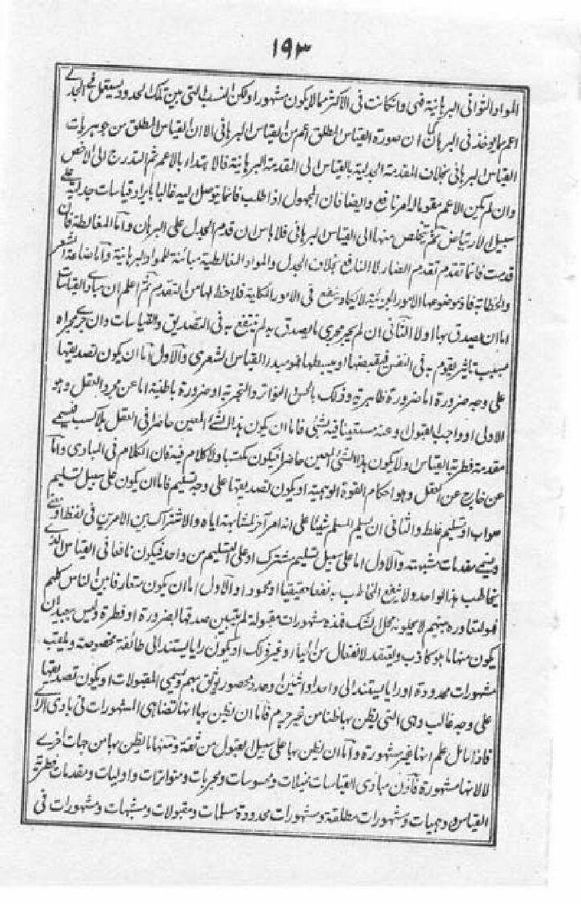 ١٩٣
المواد الثوانى البرهانية فهى وان كانت فى الاكثر مما لا يكون مشهورا ولكن النسب التى بين تلك الحدود يستعمل فى الجدل
اعم مما يوخذ فى البرهان ان صورة القياس المطلق اعم من القياس البرهانى الا ان القياس المطلق من جوهريات
القياس البرهانى بخلاف المقدمة الجدلية بالقياس الى المقدمة البرهانية فالابتداء بالاعم ثم التدرج الى الاخص
وان لم يكن الاعم مقوما له امر نافع وايضا فان المجهول اذا طلب فانما يتوصل اليه غالبا بايراد قياسات جدلية على
سبيل الارتياض ثم يتخلص منها الى القياس البرهانى فلا باس ان قدم الجدل على البرهان واما المغالطة فان
قدمت فانما تقدم تقدم الضار لا النافع بخلاف الجدل والمواد المغالطية مبائنة للمواد البرهانية واما صناعة الشعر
والخطابة فاذ موضوعهما الامور الجزئية لا يكاد ينتفع فى الامور الكلية فلاحظ لهما من التقدم ثم اعلم ان مبادى القياسات
اما ان يصدق بها اولا الثانى ان لم يجر مجرى ما يصدق به لم ينتفع به فى التصديق والقياسات وان جرى مجراه
بسبب تاثير يقوم به فى النفس فيقبضها او يبسطها فهو مبدء القياس الشعرى والاول اما ان يكون تصديقها
على وجه ضرورة اما ضرورة ظاهرية وذلك بالحس او التواتر والتجربة او ضرورة باطنية اما عن مجرد العقل وهو
الاولى او واجب القبول وعنه مستعينا فيه بشئ فاما ان يكون هذا الشئ المعين حاضرا فى العقل بلا كسب فيسمى
مقدمة فطرية القياس ولا يكون هذا الشئ المعين حاضرا فيكون مكتسبا ولا كلام فيه فان الكلام فى المبادى واما
عن خارج عن العقل وهو احكام القوة الوهمية او يكون تصديقها على وجه تسليم فاما ان يكون على سبيل تسليم
صواب او تسليم غلط والثانى ان يسلم المسلم شيئا على انه امر آخر لمشابهته اياه والاشتراك بين الامرين فى لفظ او معنى
ويسمى مقدمات مشبهة والاول اما على سبيل تسليم مشترك او على التسليم من واحد فيكون نافعا فى القياس الذى
يخاطب هذا الواحد ولا ينفع المخاطب به نفعا حقيقيا او محمودا والاول اما ان يكون متعارفا من الناس كلهم
مشهورات محدودة او رايا يستند الى واحد او اثنين او عدد محصور يوثق بهم ويسمى المقبولات او يكون تصديقها
على وجه غالب وهى التى يظن بها ظنا من غير جزم فاما ان يظن بها انها تضاهى المشهورات فى بادى الراى
فاذا تامل علم انها غير مشهورة واما ان يظن بها على سبيل القبول من ثقة ومنها ما يظن بها من جهات اخرى
لا لانها مشهورة فاذن مبادى القياسات مخيلات ومحسوسات ومجربات ومتواترات واوليات ومقدمات فطرية
القياس ووهميات ومشهورات مطلقة ومشهورات محدودة ومسلمات ومقبولات ومشبهات ومشهورات فى